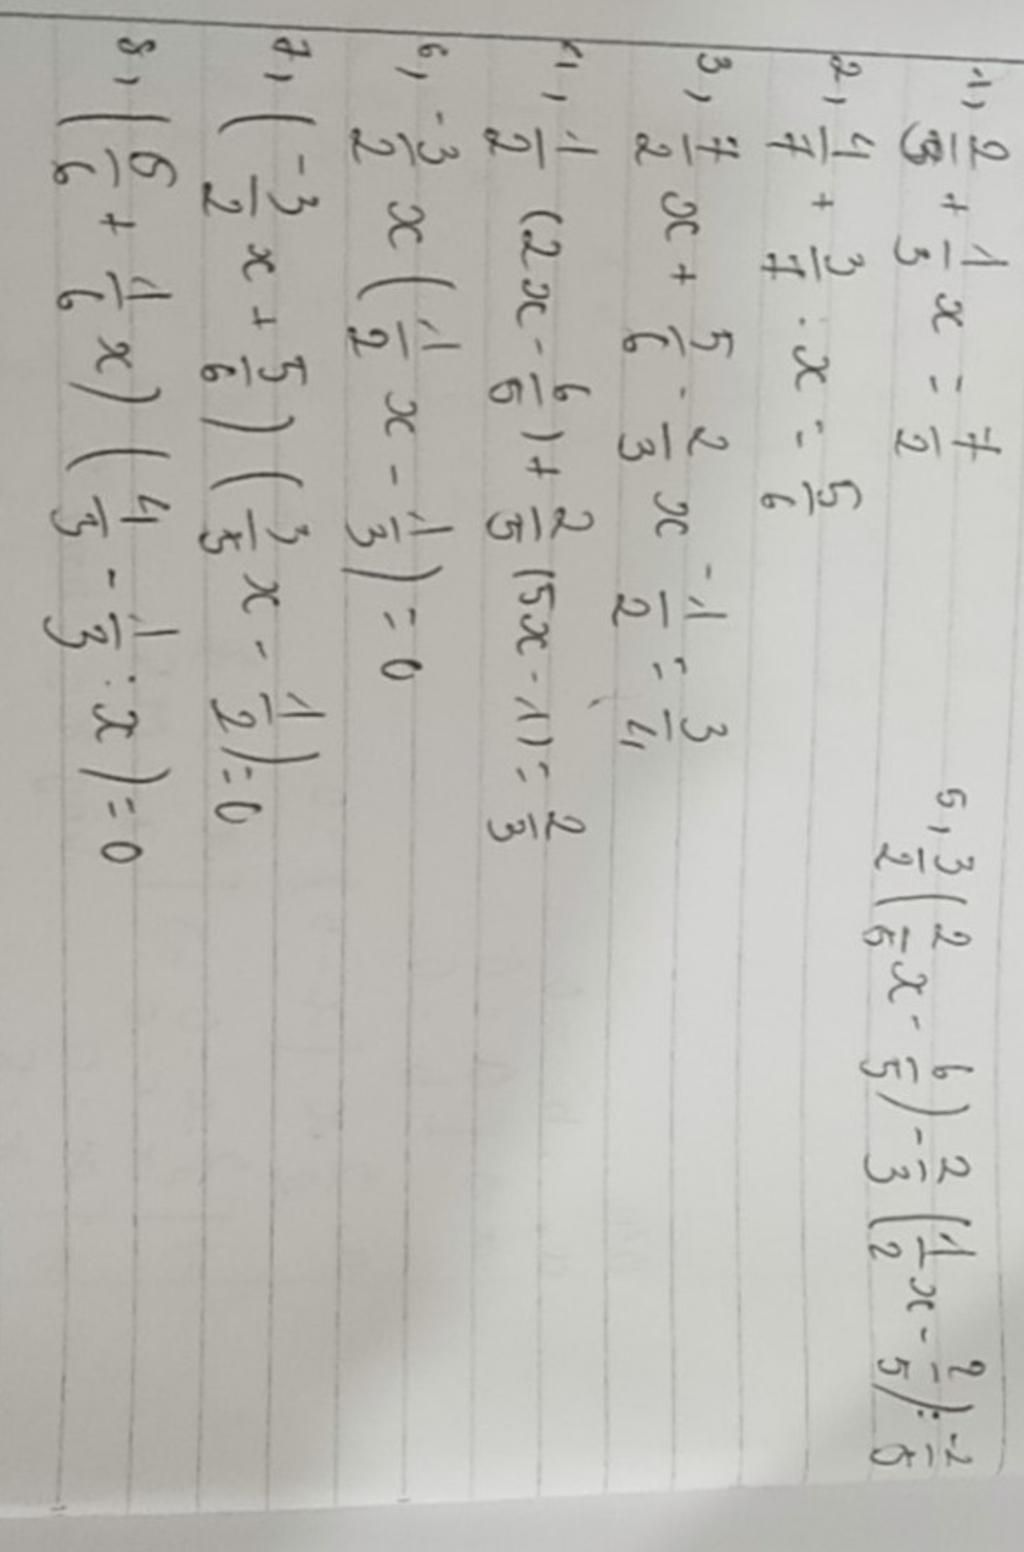 1, 2/5 + 1/3 x = 7/2
2, 4/7 + 3/7 : x = 5/6
3, 7/2 x + 5/6 - 2/3 x - 1/2 = 3/4
4, 1/2 (2x - 6/5) + 2/5 (5x - 1) = 2/3
5, 3/2 (2/5 x - 6/5) - 2/3 (1/2 x - 2/5) = -2/5
6, -3/2 x (1/2 x - 1/3) = 0
7, (-3/2 x + 5/6) (3/5 x - 1/2) = 0
8, (5/6 + 1/6 x) (4/3 - 1/3 : x) = 0